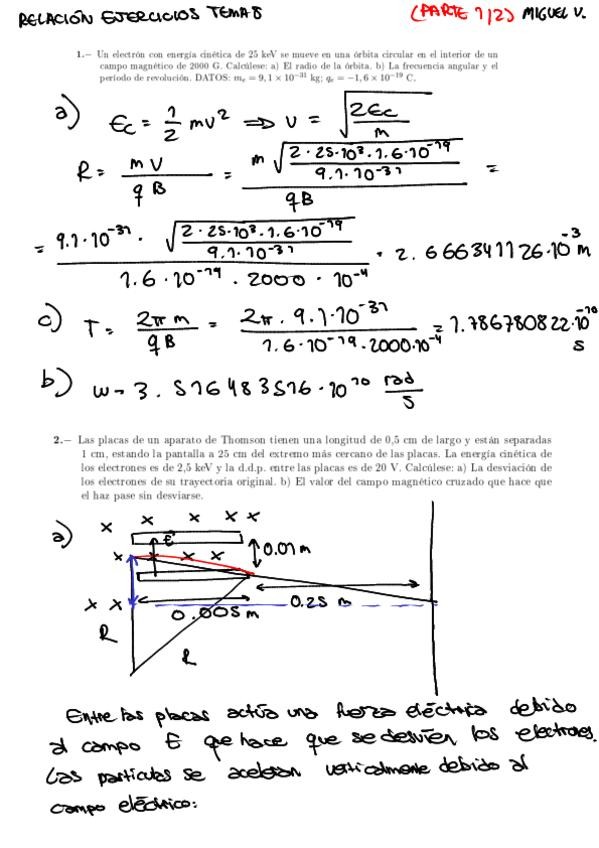 RELACIÓN EJERCICIOS TEMA 8 (PARTE 1/2) MIGUEL V.
1.– Un electrón con energía cinética de 25 keV se mueve en una órbita circular en el interior de un
campo magnético de 2000 G. Calcúlese: a) El radio de la órbita. b) La frecuencia angular y el
período de revolución. DATOS: mₑ = 9,1 × 10⁻³¹ kg; qₑ = −1,6 × 10⁻¹⁹ C.
a) Ec = 1/2 mv² ⇒ v = √(2Ec/m)
R = mv/qB = m √(2·25·10³·1.6·10⁻¹⁹/9.1·10⁻³¹)/qB =
= 9.1·10⁻³¹ · √(2·25·10³·1.6·10⁻¹⁹/9.1·10⁻³¹)/1.6·10⁻¹⁹·2000·10⁻⁴ = 2.666341126·10⁻³ m
c) T = 2π m/qB = 2π·9.1·10⁻³¹/1.6·10⁻¹⁹·2000·10⁻⁴ = 1.786780822·10⁻¹⁰ s
b) w = 3.516483516·10¹⁰ rad/s
2.– Las placas de un aparato de Thomson tienen una longitud de 0,5 cm de largo y están separadas
1 cm, estando la pantalla a 25 cm del extremo más cercano de las placas. La energía cinética de
los electrones es de 2,5 keV y la d.d.p. entre las placas es de 20 V. Calcúlese: a) La desviación de
los electrones de su trayectoria original. b) El valor del campo magnético cruzado que hace que
el haz pase sin desviarse.
x x x x x
a) E
x x x x 0.01 m
x x 0.25 m
0.005 m
R
R
Entre las placas actúa una fuerza eléctrica debido
al campo E que hace que se desvíen los electrones.
Las partículas se aceleran verticalmente debido al
campo eléctrico: